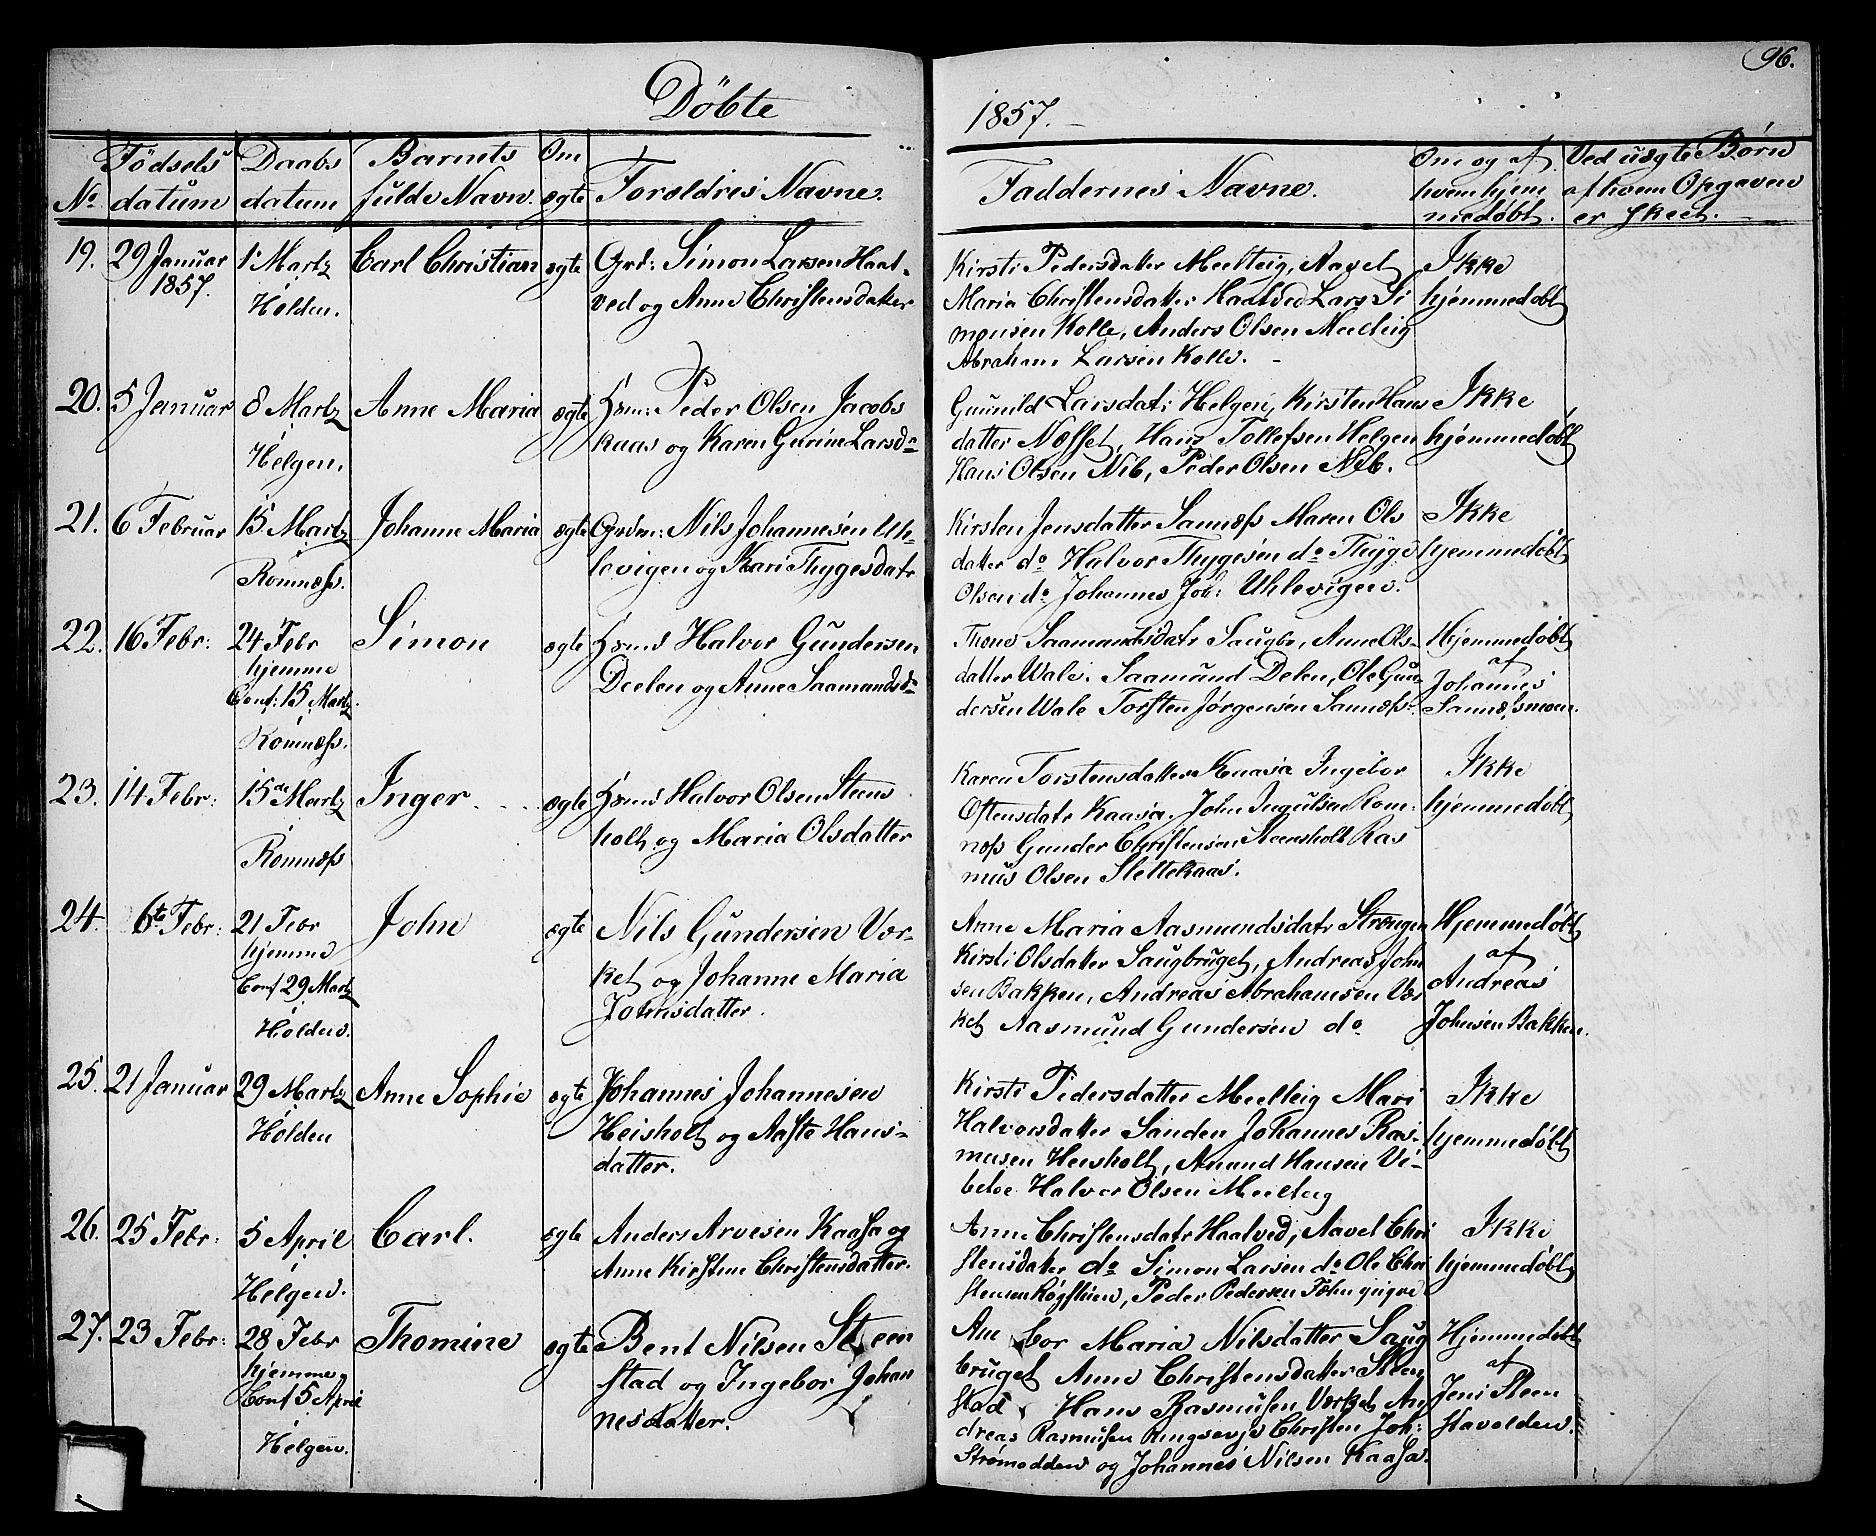 96.
Döbte
1857.
No.
Födsels datum
Daabs datum
Barnets fulde Navn.
Om ægte
Forældres Navne.
Faddernes Navne.
Om og af hvem hjemmedøbt.
Ved uægte Børn af hvem Opgaven er skeet.
19.
29 Januar 1857.
1 Martz i Holden.
Carl Christian
ægte
Grd: Simon Larsen Haat-
ved og Anne Christensdatter
Kirsti Pedersdatter Meelteig, Aavel
Maria Christensdatter Haatved Lars Si
monsen Kolle, Anders Olsen Meelteig
Abraham Larsen Kolle.
Ikke
hjemmedøbt
20.
5 Januar
8 Martz
i
Helgen.
Anne Maria
ægte
Hsm: Peder Olsen Jacobs
kaas og Karen Gurine Larsdr
Gunnild Larsdat: Helgen, Kirsten Hans
datter Næsset, Hans Tollefsen Helgen
Hans Olsen Nib, Peder Olsen Nib.
Ikke
hjemmedøbt
21.
6 Februar
15 Martz
i
Romnæss.
Johanne Maria
ægte
Grdm: Nils Johannesen Uh-
levigen og Kari Thygesdatr
Kirsten Jensdatter Sannæss Maren Ols
datter do Halvor Thygesen do Thyge
Olsen do Johannes Joh: Uhlevigen.
Ikke
hjemmedøbt
22.
16 Febr:
24 Febr
hjemme
Conf: 15 Martz
i
Romnæss.
Simon
ægte
Hsmd Halvor Gundersen
Deelen og Anne Saamundsdr
Thone Saamundsdatr Saugbr, Anne Ols-
datter Wale. Saamund Delen, Ole Gun-
dersen Wale Torsten Jørgensen Sannæss.
Hjemmedøbt
af
Johannes
Sannæsmoen.
23.
14 Febr:
15de Martz
i
Romnæss
Inger
ægte
Hsmd Halvor Olsen Steens
holt og Maria Olsdatter
Karen Torstensdatter Kaasa Ingebor
Oftensdatr Kaasa. John Ingulsen Rom-
næs Gunder Christensen Steensholt Ras
mus Olsen Slettekaas.
Ikke
hjemmedøbt
24.
6te Febr:
21 Febr
hjemme
Conf 29 Martz
i
Holden.
John
ægte
Nils Gundersen Vær-
ket og Johanne Maria
Johnsdatter.
Anne Maria Aasmundsdatr Strængen
Kirsti Olsdatter Saugbruget, Andreas John
sen Bakken, Andreas Abrahamsen Vær
ket Aasmund Gundersen do
Hjemmedøbt
af
Andreas
Johnsen Bakken.
25.
21 Januar
29 Martz
i
Holden
Anne Sophie
ægte
Johannes Johannesen
Heisholt og Aaste Hans-
datter.
Kirsti Pedersdatter Meelteig Mari
Halvorsdatter Sanden Johannes Ras-
musen Heisholt, Amund Hansen Vi-
betoe Halvor Olsen Meelteig
Ikke
hjemmedøbt
26.
25 Febr:
5 April
i
Helgen.
Carl.
ægte
Anders Arvesen Kaasa og
Anne Kirstine Christensdatter.
Anne Christensdatr Haatved, Aavel Chri
stensdatter do Simon Larsen do Ole Chri
stensen Røgstien, Peder Pedersen
Ikke
hjemmedøbt
27.
23 Febr:
28 Febr
hjemme
Conf 5 April
i
Helgen.
Thomine
ægte
Bent Nilsen Steen
stad og Ingebor Johan
nesdatter.
Maria Nilsdatter Saug
bruget Anne Christensdatter Steen
stad Hans Rasmussen Værket An
dreas Rasmussen Ringsevje Christen Joh:
Strømodden og Johannes Nilsen Kaasa.
Hjemmedøbt
af
Jens Steen
stavolden.